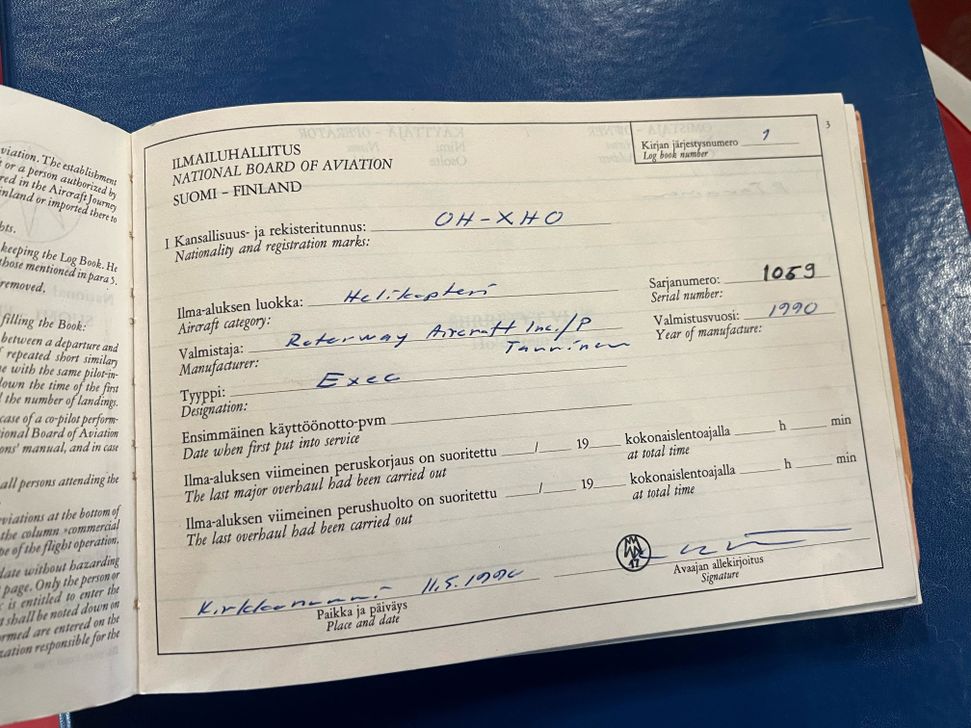 viation. The establishment
t or a person authorized by
red in the Aircraft Journey
inland or imported there to
bts.
keeping the Log Book. He
those mentioned in para 5.
removed.
filling the Book:
between a departure and
repeated short similary
e with the same pilot-in-
down the time of the first
l the number of landings.
case of a co-pilot perform-
ional Board of Aviation
ons' manual, and in case
all persons attending the
viations at the bottom of
the column »commercial
pe of the flight operation.
date without hazarding
page. Only the person or
is entitled to enter the
t shall be noted down on
ormed are entered on the
zation responsible for the
3
ILMAILUHALLITUS
NATIONAL BOARD OF AVIATION
SUOMI – FINLAND
Kirjan järjestysnumero 1
Log book number
1 Kansallisuus- ja rekisteritunnus: OH-XHO
Nationality and registration marks:
Ilma-aluksen luokka: Helikopteri
Aircraft category:
Sarjanumero: 1059
Serial number:
Valmistaja: Roterway Aircraft Inc./P
Tanninen
Manufacturer:
Valmistusvuosi: 1990
Year of manufacture:
Tyyppi: Exec
Designation:
Ensimmäinen käyttöönotto-pvm
Date when first put into service
Ilma-aluksen viimeinen peruskorjaus on suoritettu / 19 kokonaislentoajalla h min
The last major overhaul had been carried out at total time
Ilma-aluksen viimeinen perushuolto on suoritettu / 19 kokonaislentoajalla h min
The last overhaul had been carried out at total time
Kirkkonummi 11.5.1990
Paikka ja päiväys
Place and date
Avaajan allekirjoitus
Signature